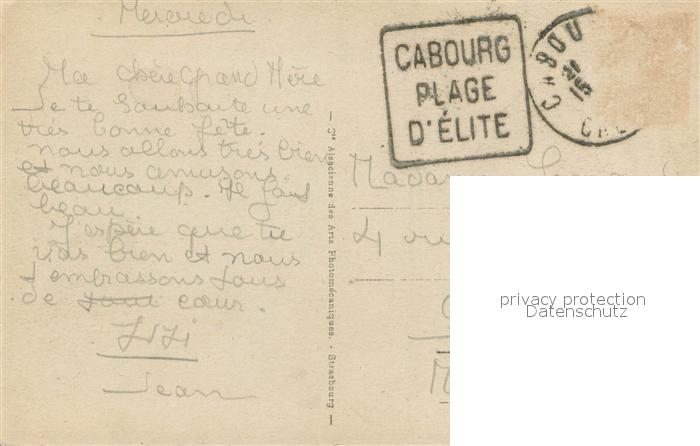 Mercredi
Ma chère Grand Mère
Je te souhaite une
très bonne fête.
nous allons très bien
et nous amusons
beaucoup. Il fait
beau.
J'espère que tu
vas bien et nous
t'embrassons tous
de tout cœur.
Jean
Cie Alsacienne des Arts Photomécaniques. - Strasbourg
CABOURG
PLAGE
D'ÉLITE
CABOU
15
Madam
4 ru
privacy protection
Datenschutz